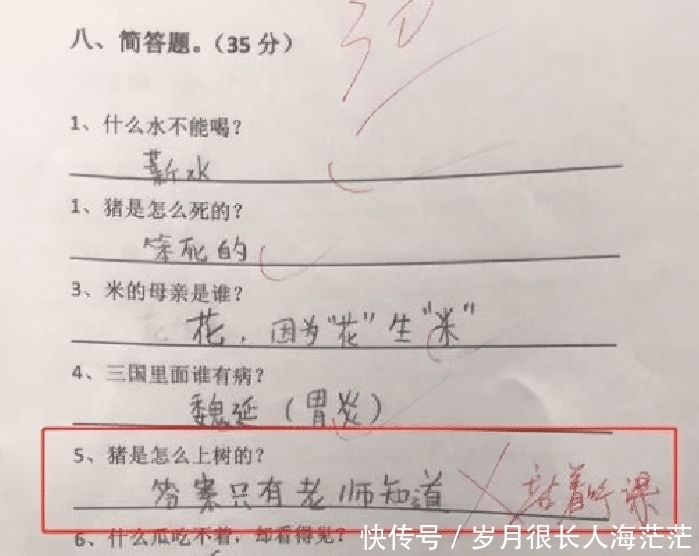 八、简答题。（35 分）
30
1、什么水不能喝？
薪水
1、猪是怎么死的？
笨死的
3、米的母亲是谁？
花，因为“花”生“米”
4、三国里面谁有病？
魏延（胃炎）
5、猪是怎么上树的？
答案只有老师知道 站着听课
6、什么瓜吃不着，却看得见？
快传号／岁月很长人海茫茫